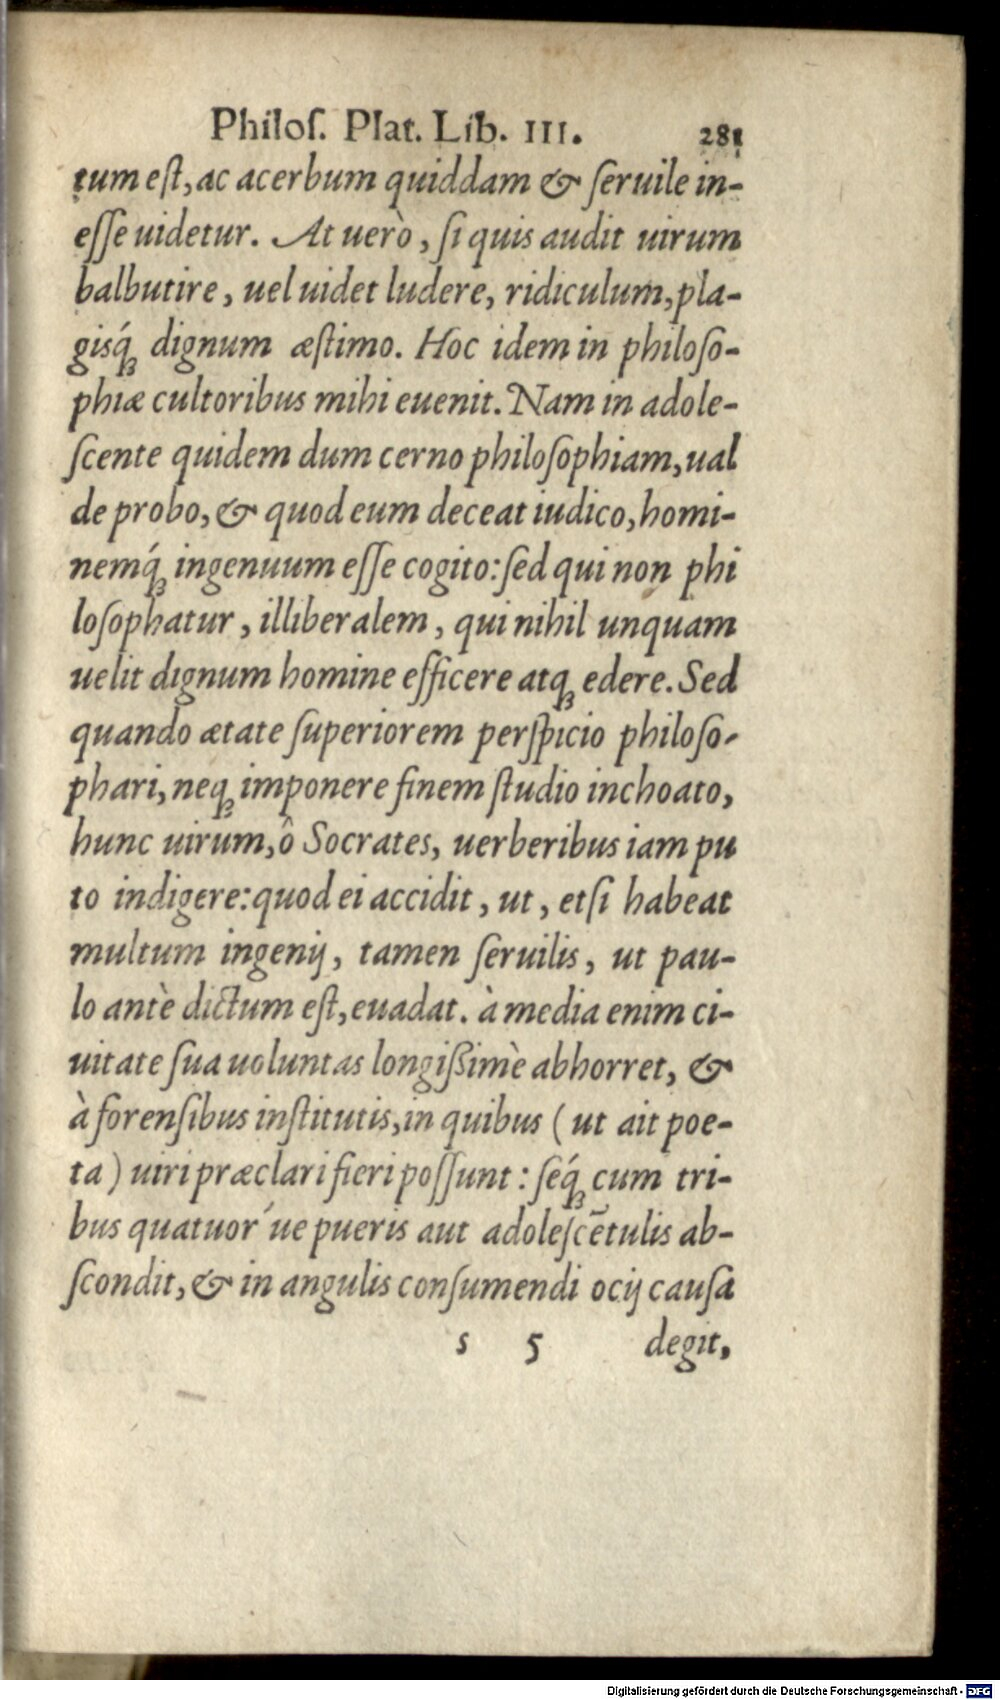 Philoſ. Plat. Lib. III. 281
tum eſt, ac acerbum quiddam & ſeruile in-
eſſe uidetur. At uerò, ſi quis audit uirum
balbutire, uel uidet ludere, ridiculum, pla-
gisq́; dignum æſtimo. Hoc idem in philoſo-
phiæ cultoribus mihi euenit. Nam in adole-
ſcente quidem dum cerno philoſophiam, ual
de probo, & quod eum deceat iudico, homi-
nemq́; ingenuum eſſe cogito: ſed qui non phi
loſophatur, illiberalem, qui nihil unquam
uelit dignum homine efficere atq; edere. Sed
quando ætate ſuperiorem perſpicio philoſo-
phari, neq; imponere finem ſtudio inchoato,
hunc uirum, ô Socrates, uerberibus iam pu
to indigere: quod ei accidit, ut, etſi habeat
multum ingenij, tamen ſeruilis, ut pau-
lo antè dictum eſt, euadat. à media enim ci-
uitate ſua uoluntas longißimè abhorret, &
à forenſibus inſtitutis, in quibus ( ut ait poe-
ta ) uiri præclari fieri poſſunt: ſeq́; cum tri-
bus quatuor´ue pueris aut adoleſcẽtulis ab-
ſcondit, & in angulis conſumendi ocij cauſa
s 5 degit,
Digitalisierung gefördert durch die Deutsche Forschungsgemeinschaft - DFG